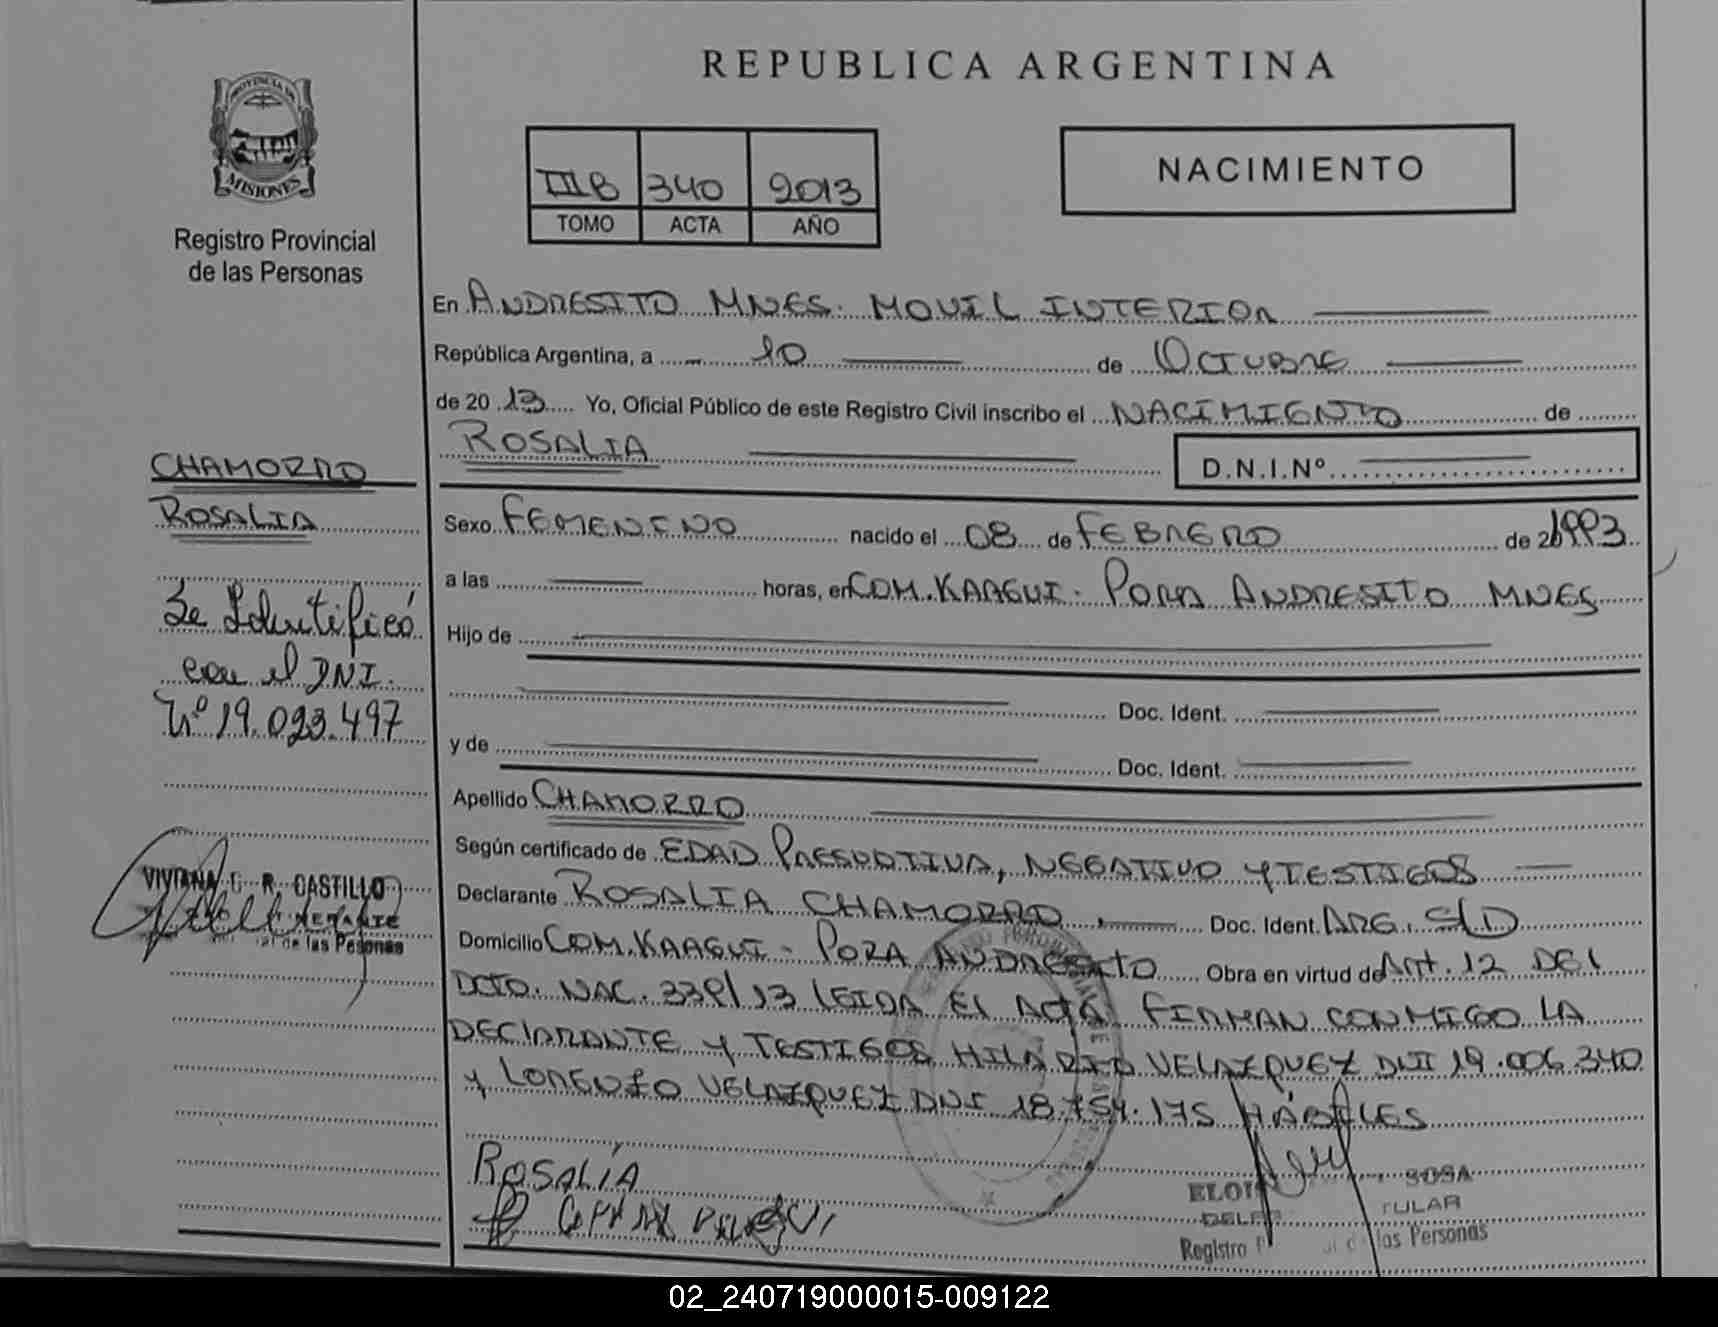 REPUBLICA ARGENTINA
PROVINCIA DE
MISIONES
Registro Provincial
de las Personas
IIIB 340 2013
TOMO ACTA AÑO
NACIMIENTO
En ANDRESITO MNES. MOVIL INTERIOR
República Argentina, a 10 de OCTUBRE
de 20 13 Yo, Oficial Público de este Registro Civil inscribo el NACIMIENTO de
ROSALIA
D.N.I.Nº
CHAMORRO
ROSALIA
Se Identificó
con el DNI.
Nº 19.023.497
VIVIANA R. CASTILLO
de las Personas
Sexo FEMENINO nacido el 08 de FEBRERO de 1993
a las horas, en COM. KAAGUI - PORA ANDRESITO MNES
Hijo de
Doc. Ident.
y de
Doc. Ident.
Apellido CHAMORRO
Según certificado de EDAD PRESUNTIVA, NEGATIVO Y TESTIGOS
Declarante ROSALIA CHAMORRO, Doc. Ident. ARG. S/D
Domicilio COM. KAAGUI - PORA ANDRESITO Obra en virtud de Art. 12 DEl
DCTO. NAC. 339/13 LEIDA El ACTA FIRMAN CONMIGO LA
DEClARANTE Y TESTIGOS HILARIO VELAZQUEZ DNI 19.006.340
Y LORENZO VELAZQUEZ DNI 18.754.175 HÁBILES
ROSALÍA
SOSA
TULAR
Registro las Personas
02_240719000015-009122